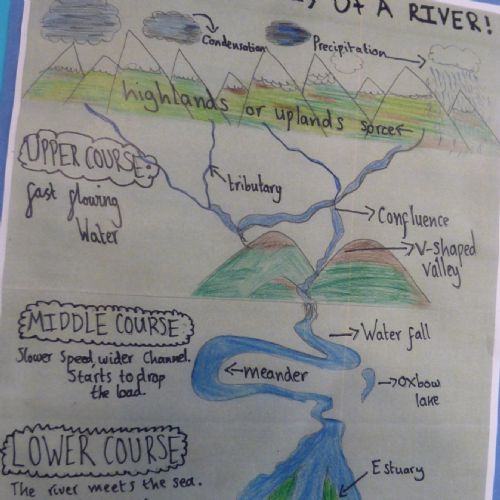 OF A RIVER!
Condensation
Precipitation
highlands or uplands sorce
UPPER COURSE:
fast flowing
Water
tributary
Confluence
V-shaped
valley
MIDDLE COURSE
Slower Speed, wider Channel.
Starts to drop
the load.
Water fall
meander
Oxbow
lake
LOWER COURSE
The river meets the sea.
Estuary